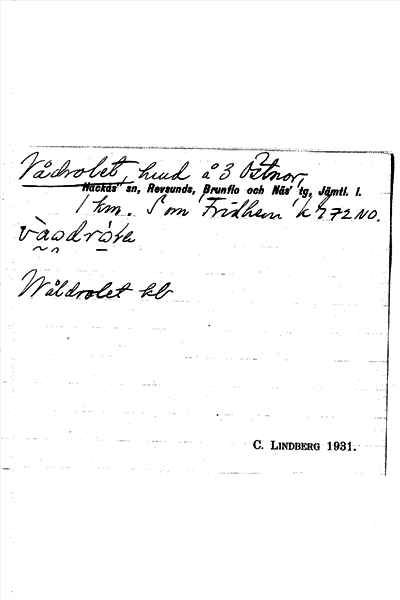 Vådrolet, hmd å 3 Östnor,
Hackås' sn, Revsunds, Brunflo och Näs' tg, Jämtl. l.
1 km. S om Fridhem k 272 NO.
Wåldrolet kb
C. LINDBERG 1931.